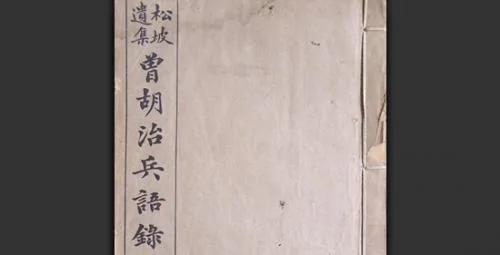 松坡
遺集
曾胡治兵語錄